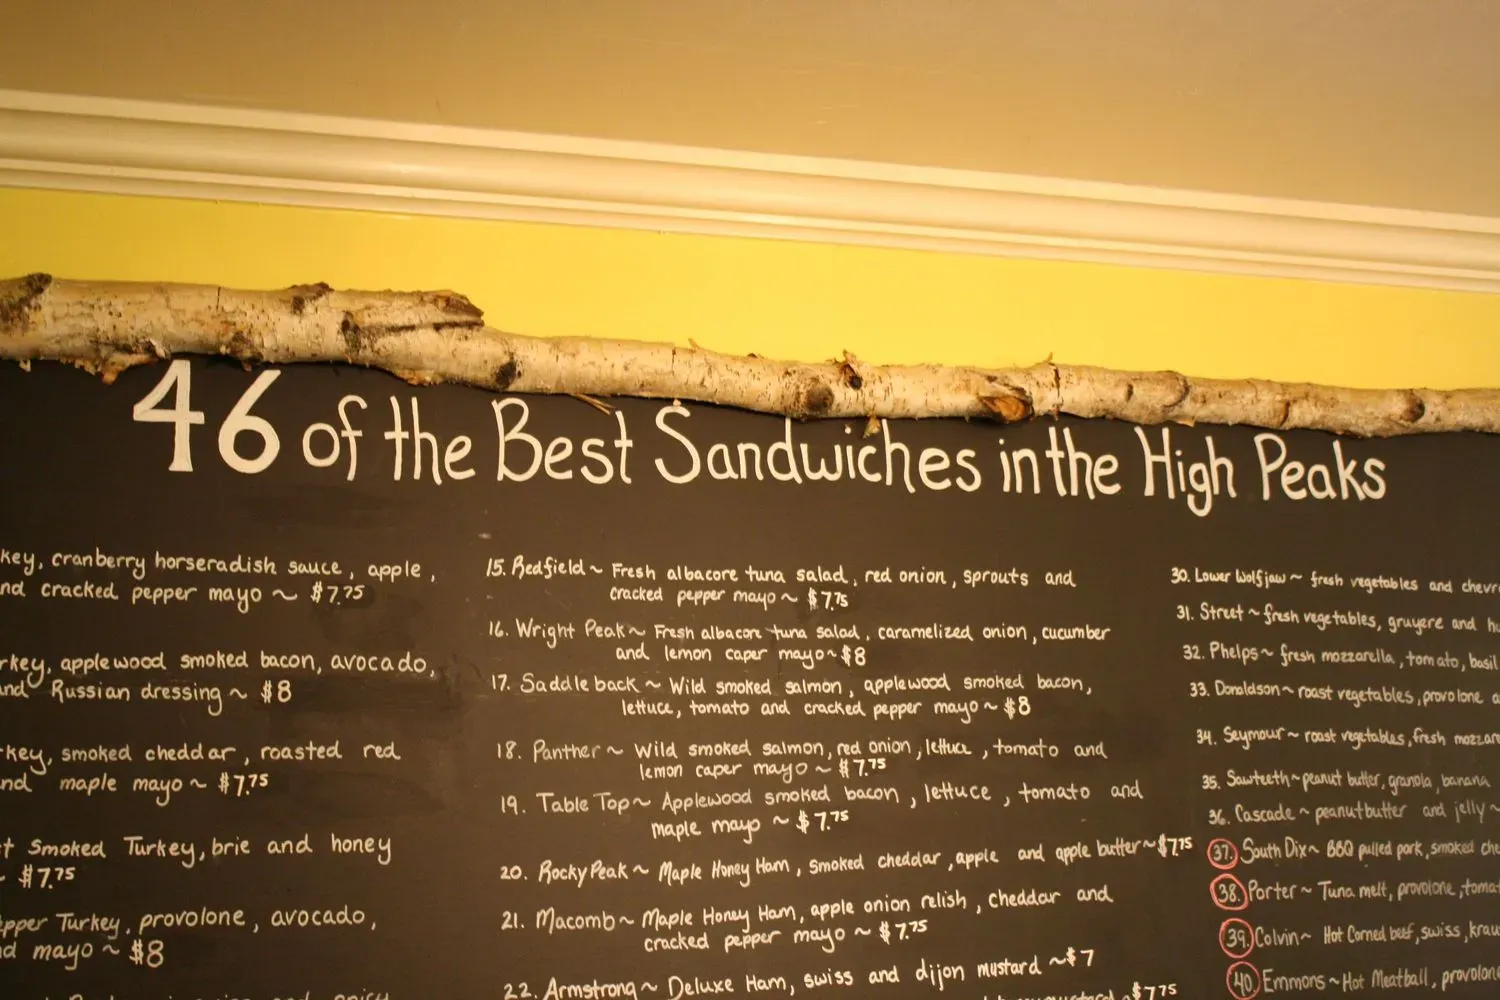 46 of the Best Sandwiches in the High Peaks
cranberry horseradish sauce, apple,
cracked pepper mayo ~ $7.75
applewood smoked bacon, avocado,
Russian dressing ~ $8
smoked cheddar, roasted red
maple mayo ~ $7.75
Smoked Turkey, brie and honey
~ $7.75
Turkey, provolone, avocado,
mayo ~ $8
15. Redfield ~ Fresh albacore tuna salad, red onion, sprouts and
cracked pepper mayo ~ $7.75
16. Wright Peak ~ Fresh albacore tuna salad, caramelized onion, cucumber
and lemon caper mayo ~ $8
17. Saddleback ~ Wild smoked salmon, applewood smoked bacon,
lettuce, tomato and cracked pepper mayo ~ $8
18. Panther ~ Wild smoked salmon, red onion, lettuce, tomato and
lemon caper mayo ~ $7.75
19. Table Top ~ Applewood smoked bacon, lettuce, tomato and
maple mayo ~ $7.75
20. Rocky Peak ~ Maple Honey Ham, smoked cheddar, apple and apple butter ~ $7.75
21. Macomb ~ Maple Honey Ham, apple onion relish, cheddar and
cracked pepper mayo ~ $7.75
22. Armstrong ~ Deluxe Ham, swiss and dijon mustard ~ $7
~ $7.75
30. Lower Wolfjaw ~ fresh vegetables and
31. Street ~ fresh vegetables, gruyere and
32. Phelps ~ fresh mozzarella, tomato, basil
33. Donaldson ~ roast vegetables, provolone
34. Seymour ~ roast vegetables, fresh
35. Sawteeth ~ peanut butter, granola, banana
36. Cascade ~ peanut butter and jelly ~
37. South Dix ~ BBQ pulled pork, smoked
38. Porter ~ Tuna melt, provolone,
39. Colvin ~ Hot Corned beef, swiss,
40. Emmons ~ Hot Meatball, provolone